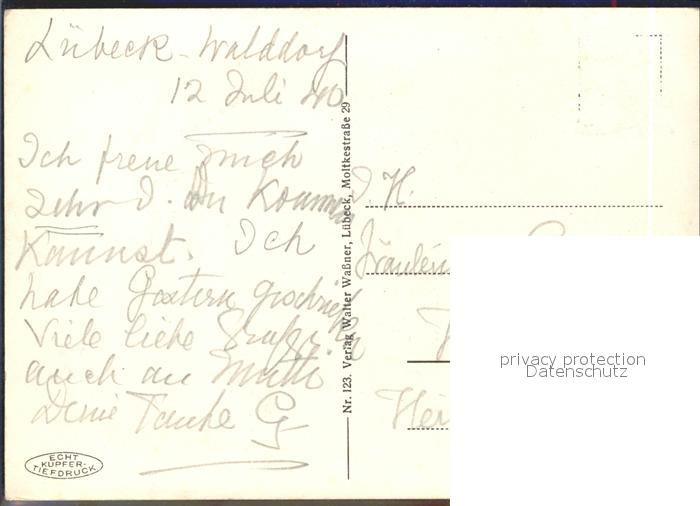 Lübeck-Walddorf
12 Juli 40
Ich freue mich
sehr d. Du kommen
kannst. Ich
habe Gestern geschrieb
Viele liebe Grüße
auch an Mutti
Deine Tante G
ECHT
KUPFER-
TIEFDRUCK
Nr. 123. Verlag Walter Waßner, Lübeck, Moltkestraße 29
H.
Fräulein
Hei
privacy protection
Datenschutz